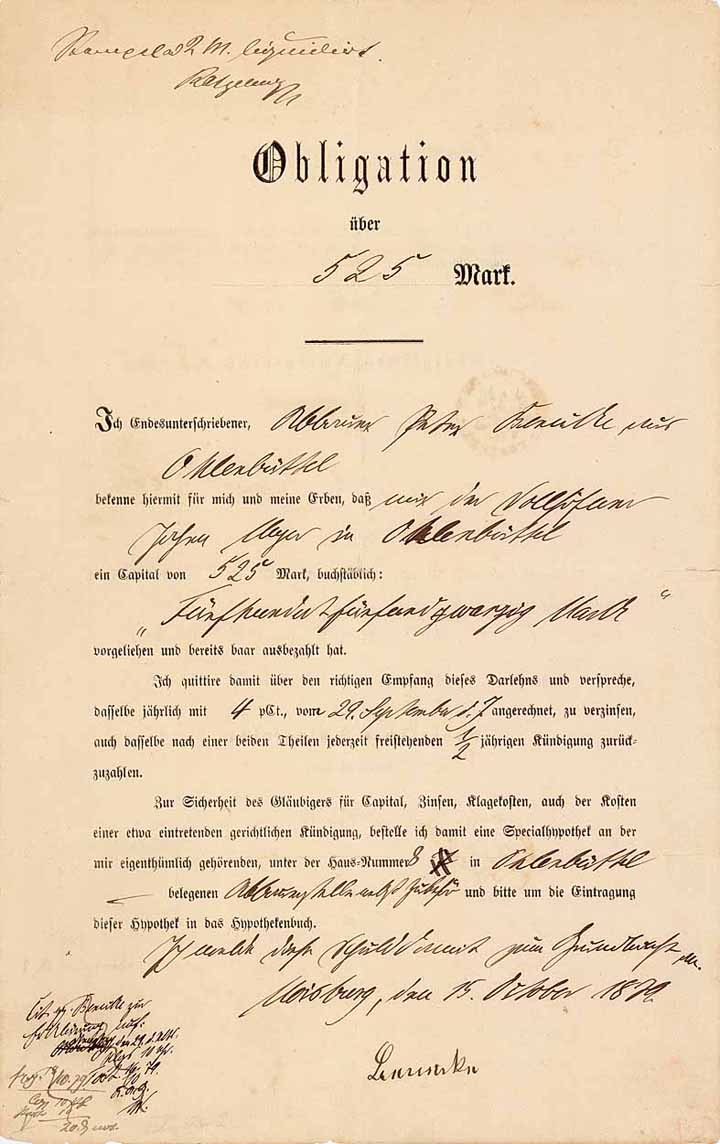 Stempel ad 2 M. liquidirt.
Obligation
über
525 Mark.
Ich Endesunterschriebener, Abbauer Peter aus
Ohlenbüttel
bekenne hiermit für mich und meine Erben, daß mir der Vollhöfner
Johann Meyer in Ohlenbüttel
ein Capital von 525 Mark, buchstäblich:
„Fünfhundertfünfundzwanzig Mark“
vorgeliehen und bereits baar ausbezahlt hat.
Ich quittire damit über den richtigen Empfang dieses Darlehns und verspreche,
dasselbe jährlich mit 4 pCt., vom 29. September d. J. angerechnet, zu verzinsen,
auch dasselbe nach einer beiden Theilen jederzeit freistehenden 1/2 jährigen Kündigung zurück-
zuzahlen.
Zur Sicherheit des Gläubigers für Capital, Zinsen, Klagekosten, auch der Kosten
einer etwa eintretenden gerichtlichen Kündigung, bestelle ich damit eine Specialhypothek an der
mir eigenthümlich gehörenden, unter der Haus-Nummer 8 in Ohlenbüttel
belegenen Abbauerstelle nebst Zubehör und bitte um die Eintragung
dieser Hypothek in das Hypothekenbuch.
Ich melde diese Schuld damit zum Grundbuch an.
Moisburg, den 15. October 1879.